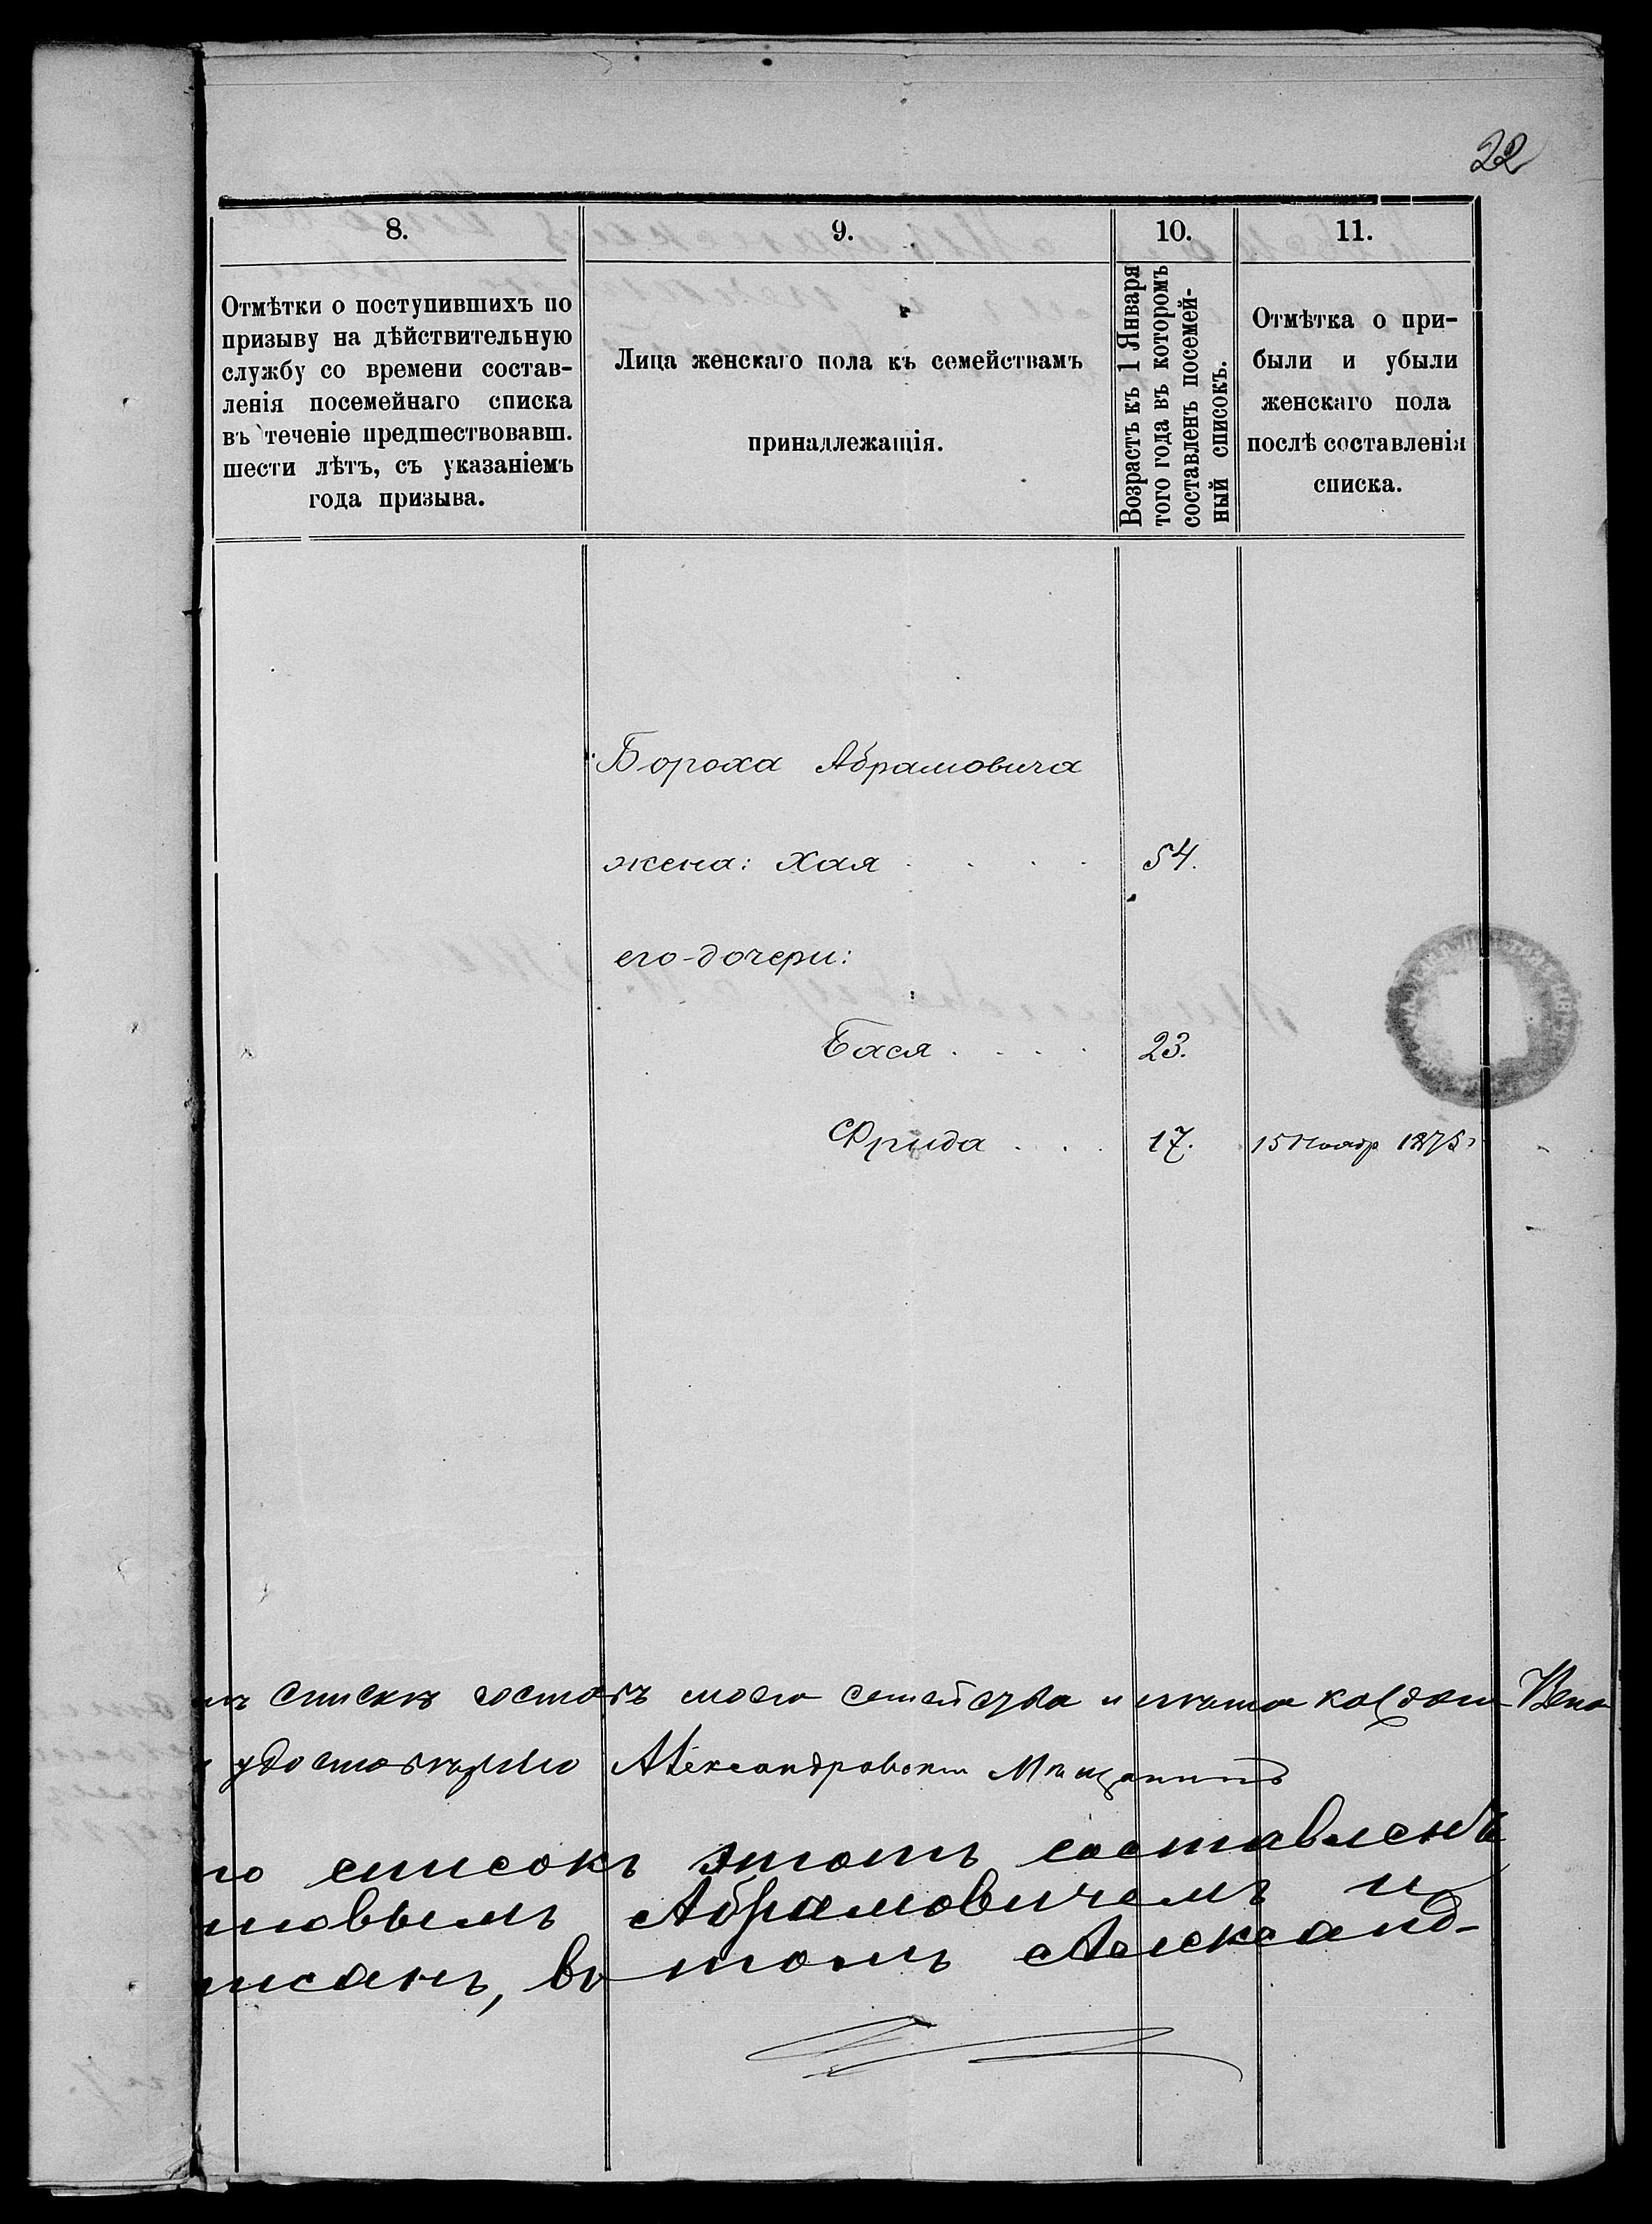 22
8.
9.
10.
11.
Отмѣтки о поступившихъ по
призыву на дѣйствительную
службу со времени состав-
ленія посемейнаго списка
въ теченіе предшествовавш.
шести лѣтъ, съ указаніемъ
года призыва.
Лица женскаго пола къ семействамъ
принадлежащія.
Возрастъ къ 1 Января
того года въ которомъ
составленъ посемей-
ный списокъ.
Отмѣтка о при-
были и убыли
женскаго пола
послѣ составленія
списка.
Бороха Абрамовича
жена: Хая . . . . 54.
его-дочери:
Бася . . . . 23.
Фрида . . . 17. 15 Ноябр 187
списки составъ моего семейства и
удостовѣряю Александровскій Мѣщанинъ
списокъ этотъ составленъ
новымъ Абрамовичемъ и
писанъ, въ томъ Александ-